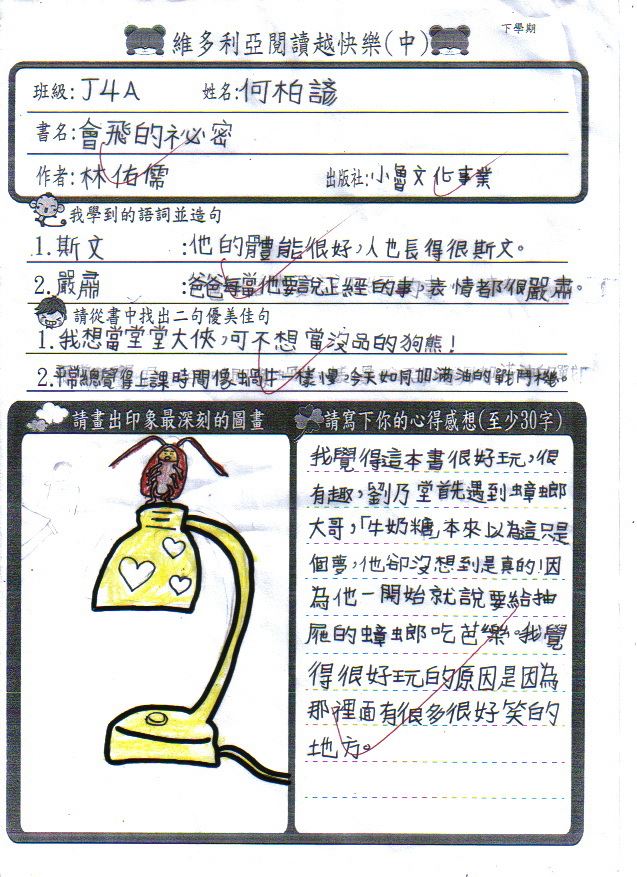 下學期
維多利亞閱讀越快樂(中)
班級:J4A 姓名:何柏諺
書名:會飛的祕密
作者:林佑儒 出版社:小魯文化事業
我學到的語詞並造句
1.斯文 :他的體能很好,人也長得很斯文。
2.嚴肅 :爸爸每當他要說正經的事,表情都很嚴肅。
請從書中找出二句優美佳句
1.我想當堂堂大俠,可不想當沒品的狗熊!
2.平常總覺得上課時間像蝸牛一樣慢,今天如同加滿油的戰鬥機。
請畫出印象最深刻的圖畫
請寫下你的心得感想(至少30字)
我覺得這本書很好玩,很
有趣,劉乃堂首先遇到蟑螂
大哥,「牛奶糖」本來以為這只是
個夢,他卻沒想到是真的!因
為他一開始就說要給抽
屜的蟑螂吃芭樂。我覺
得很好玩的原因是因為
那裡面有很多很好笑的
地方。